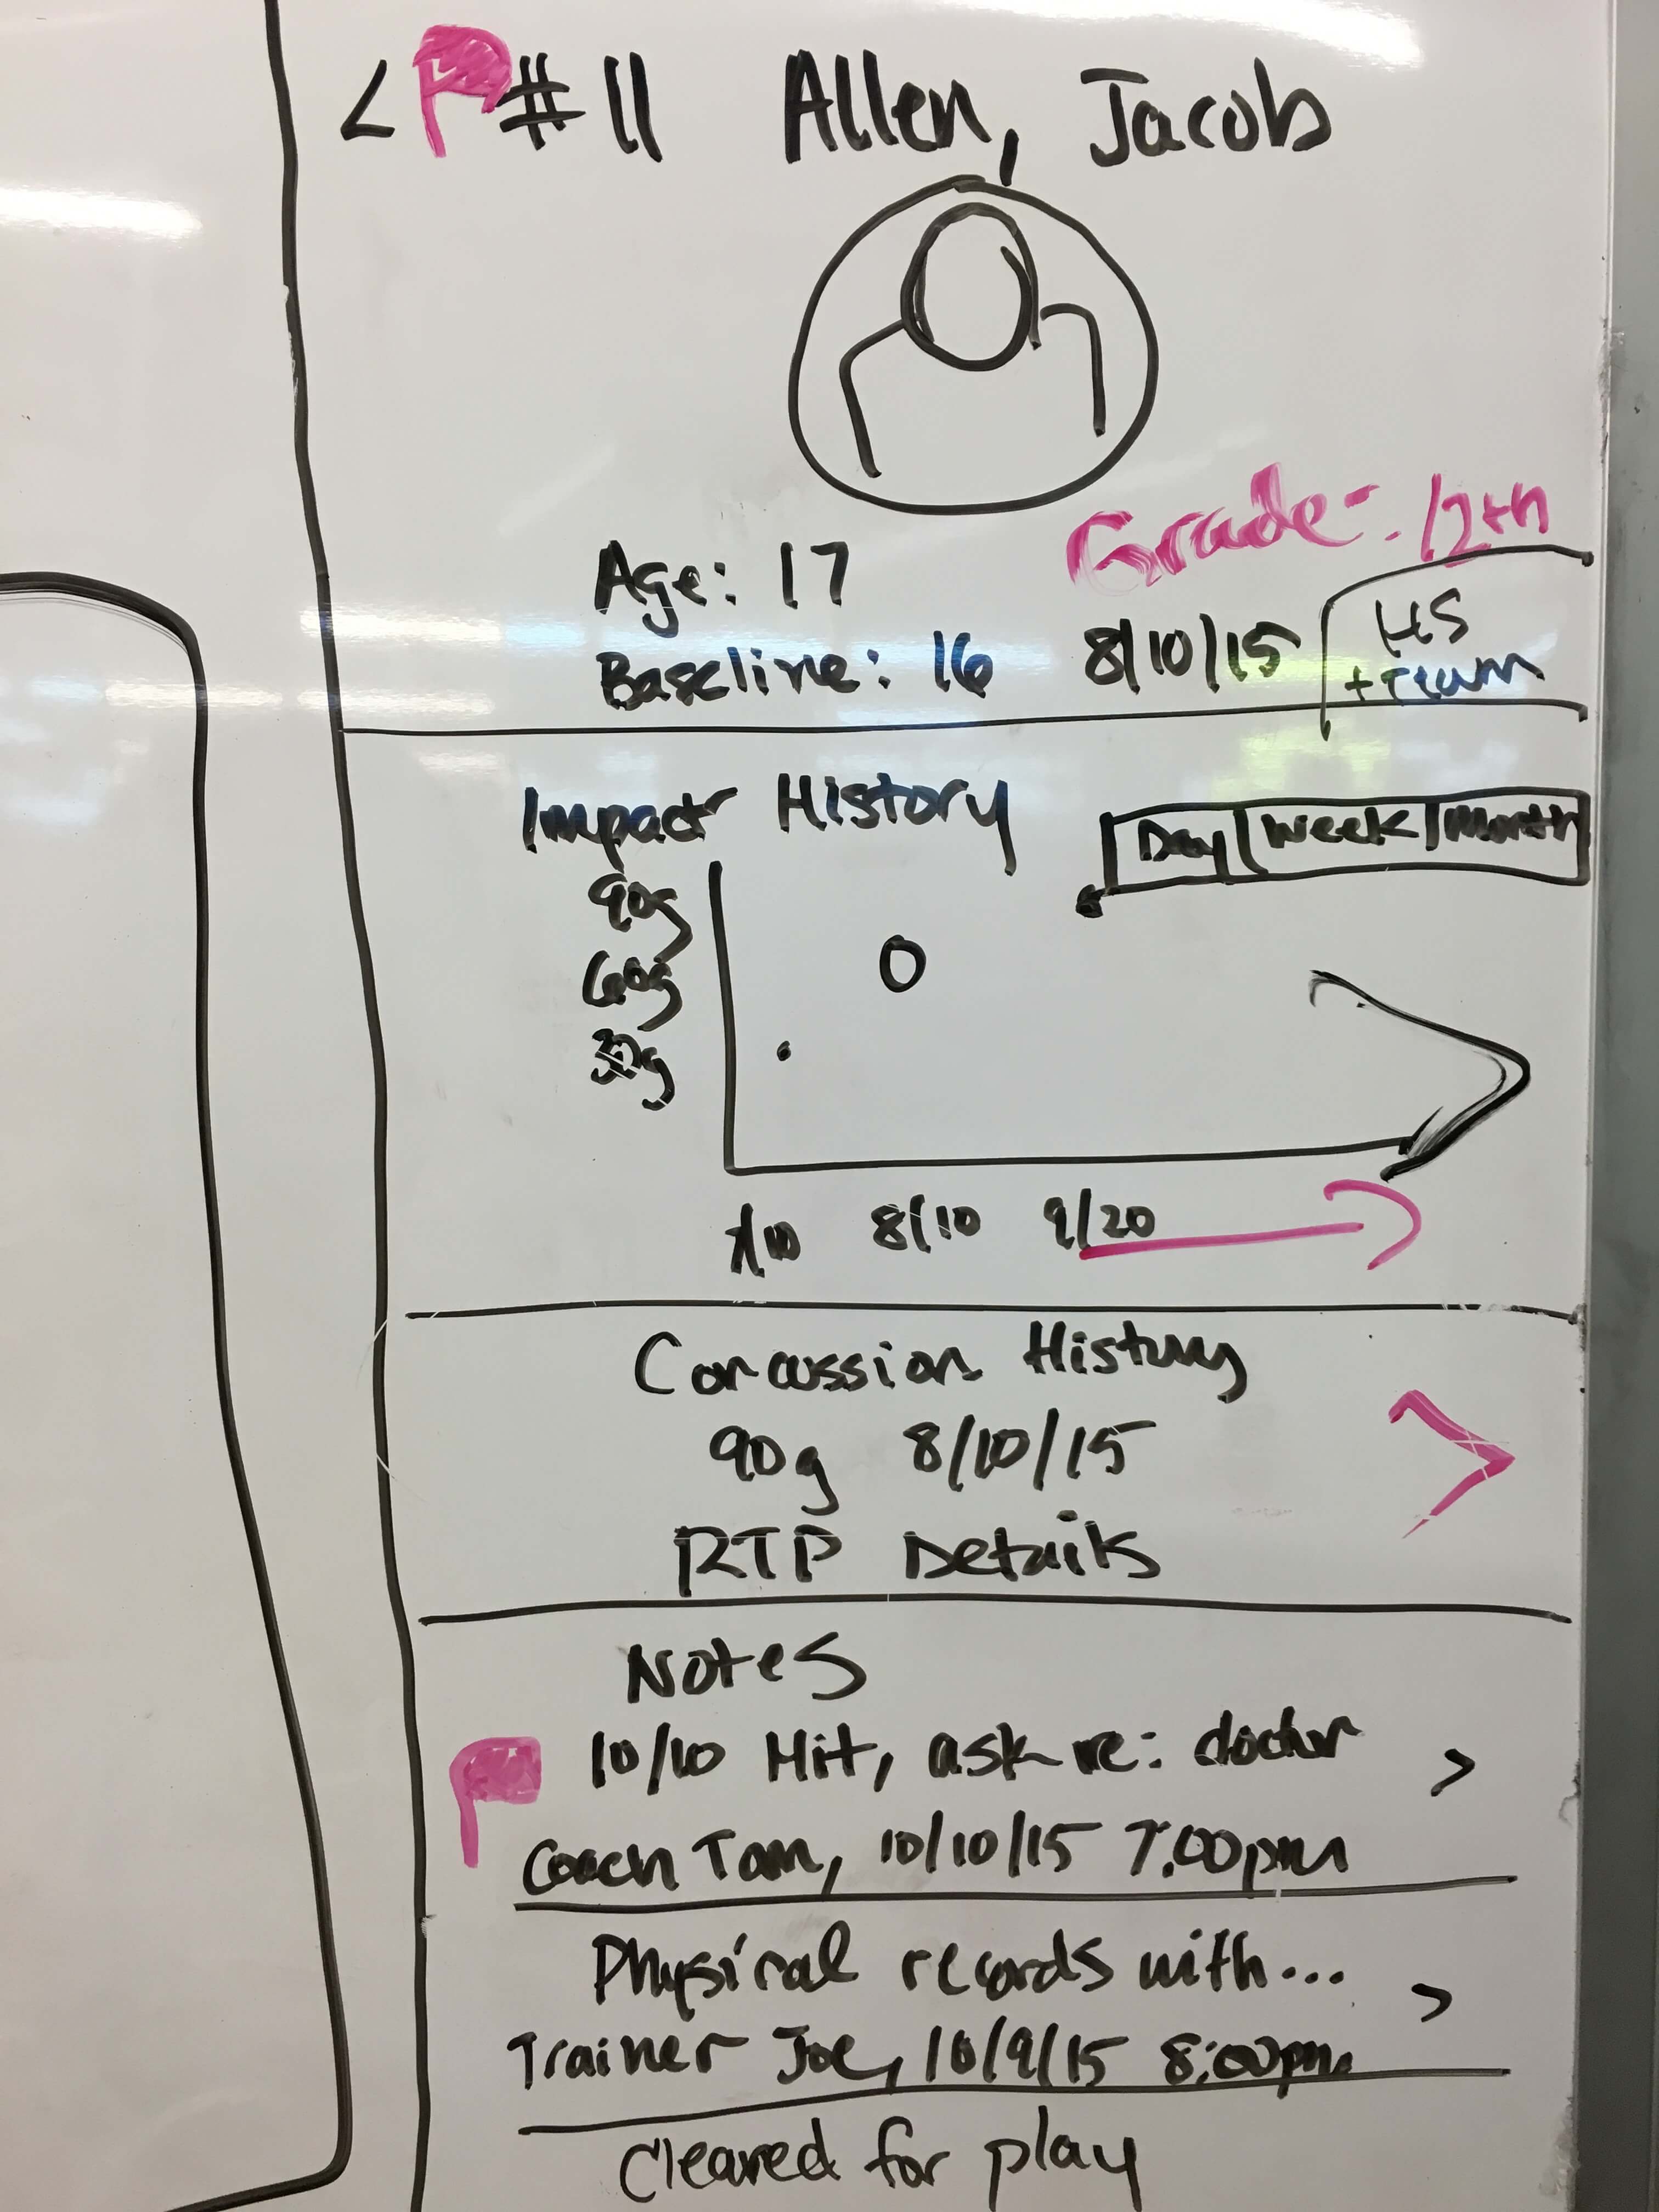 < #11 Allen, Jacob
Grade: 12th
Age: 17
Baseline: 16 8/10/15
HS
+ Team
Impact History
Day Week Month
90g
60g
30g
7/10 8/10 9/20
Concussion History
90g 8/10/15 >
RTP Details
Notes
10/10 Hit, ask re: doctor >
Coach Tom, 10/10/15 7:00pm
Physical records with... >
Trainer Joe, 10/9/15 8:00pm
Cleared for play